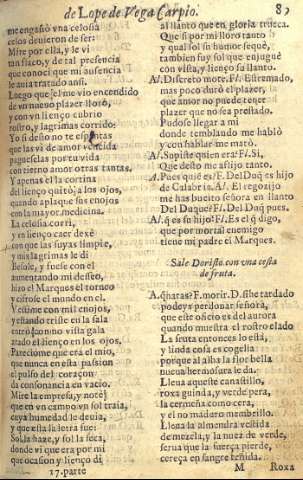 de Lope de Vega Carpio. 89
me engañò vna celosia
celos deuieron de ser:
Mire por ella, y le vi
tan flaco, y de tal presencia
que conoci que mi ausencia
le auia tratado ansi.
Luego que el me vio encendido
de mi nueuo plazer llorò,
y con vn lienço cubrio
rostro, y lagrimas corrido:
Yo si desto no te
que las vi de amor vencida
pagueselas por tu vida
con tierno amor otras tantas.
Y apenas el la cortina
del lienço quitò a los ojos,
quando aplaque sus enojos
con la mayor medicina.
La celosia corri,
y en lienço caer dexè
con que las suyas limpie,
y mis lagrimas le di
Besole, y fuele con el
aumentando mi desseo,
hizo el Marques el torneo
y cifrose el mundo en el.
Vestime con mil enojos,
y estando triste en la sala
entrò con no vista gala
atado el lienço en los ojos,
Pareciome que era el mio,
que nunca en esta passion
el pulso del coraçon
da consonancia en vacio.
Mire la empresa, y notè
que en vn campo vn sol traia,
cuya humedad le deuia,
y que esta la letra fue:
Sol la haze, y sol la seca,
donde vi que era por mi
que ocasion y lienço di
17. parte
al llanto que en gloria trueca.
Que si por mi lloro tanto
y qual sol su humor sequè,
tambien fuy sol que enjuguè
con vista, y lienço su llanto.
A. Discreto mote. F. Estremado,
mas poco durò el plazer,
que amor no puede tener
plazer que no sea prestado.
Pudose llegar a mi
donde temblando me hablò
y con hablar me matò.
A. Supiste quien era? F. Si,
Que desto me aflijo tanto.
A. Pues quiẽ es? F. Del Duq̃ es hijo
de Calabria. A. El regozijo
mẽ has buelto señora en llanto
Del Duque? F. Del Duq̃ pues.
A. Aq̃ es su hijo? F. Es el q̃ digo,
que por mortal enemigo
tiene mi padre el Marques.
Sale Doristo con vna cesta
de fruta.
A. q̃ haras? F. morir. D. si he tardado
podeys perdonar señora,
que este oficio es del aurora
quando muestra el rostro elado
La fruta entonces lo està,
y linda cosa es cogella
porque al alba la flor bella
buena hermosura le da.
Llena aqueste canastillo,
roxa guinda, y verde pera,
la cermeña como cera,
y el no maduro membrillo.
Llena la almendra vestida
de mezcla, y la nuez de verde,
serua que la fuerça pierde,
cereça en sangre teñida.
M Roxa